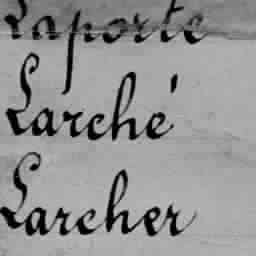 Laporte
Larché
Larcher